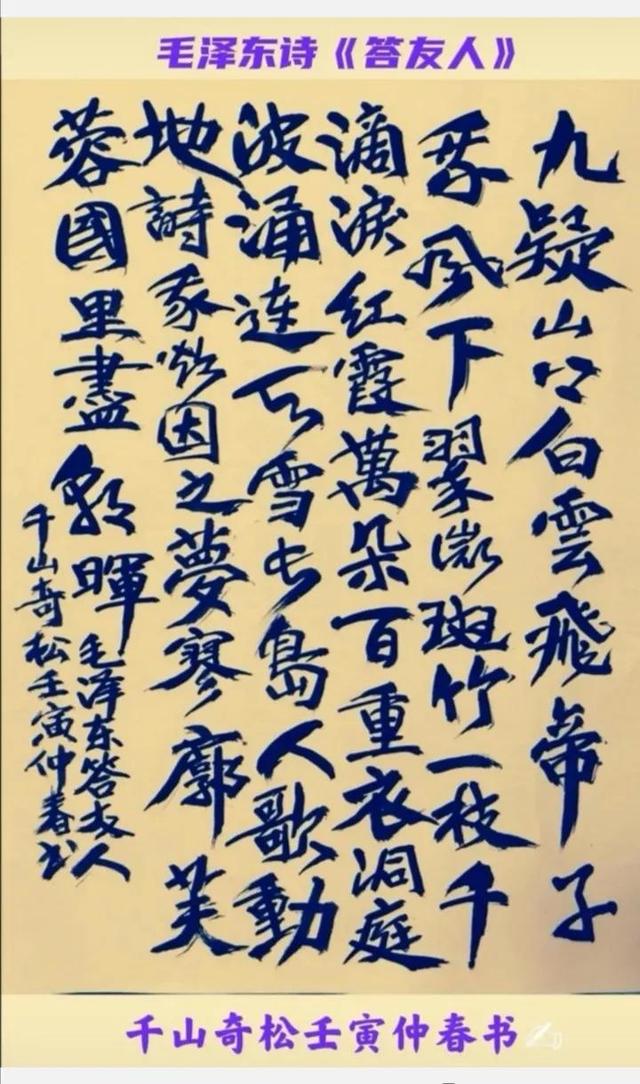 毛泽东诗《答友人》
九疑山上白雲飛帝子
乘风下翠微斑竹一枝千
滴淚红霞萬朵百重衣洞庭
波涌连天雪长島人歌動
地詩我欲因之夢寥廓芙
蓉國里盡朝暉
毛泽东答友人
千山奇松壬寅仲春书
千山奇松壬寅仲春书